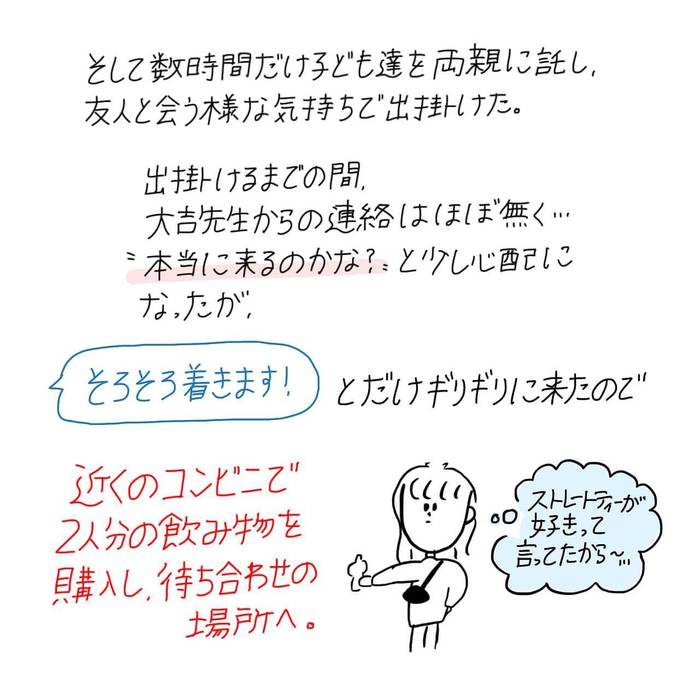 そして数時間だけ子ども達を両親に託し、
友人と会う様な気持ちで出掛けた。
出掛けるまでの間、
大吉先生からの連絡はほぼ無く…
〝本当に来るのかな？〟と少し心配に
なったが、
そろそろ着きます！とだけギリギリに来たので
近くのコンビニで
2人分の飲み物を
購入し、待ち合わせの
場所へ。
ストレートティーが
好きって
言ってたから〜…